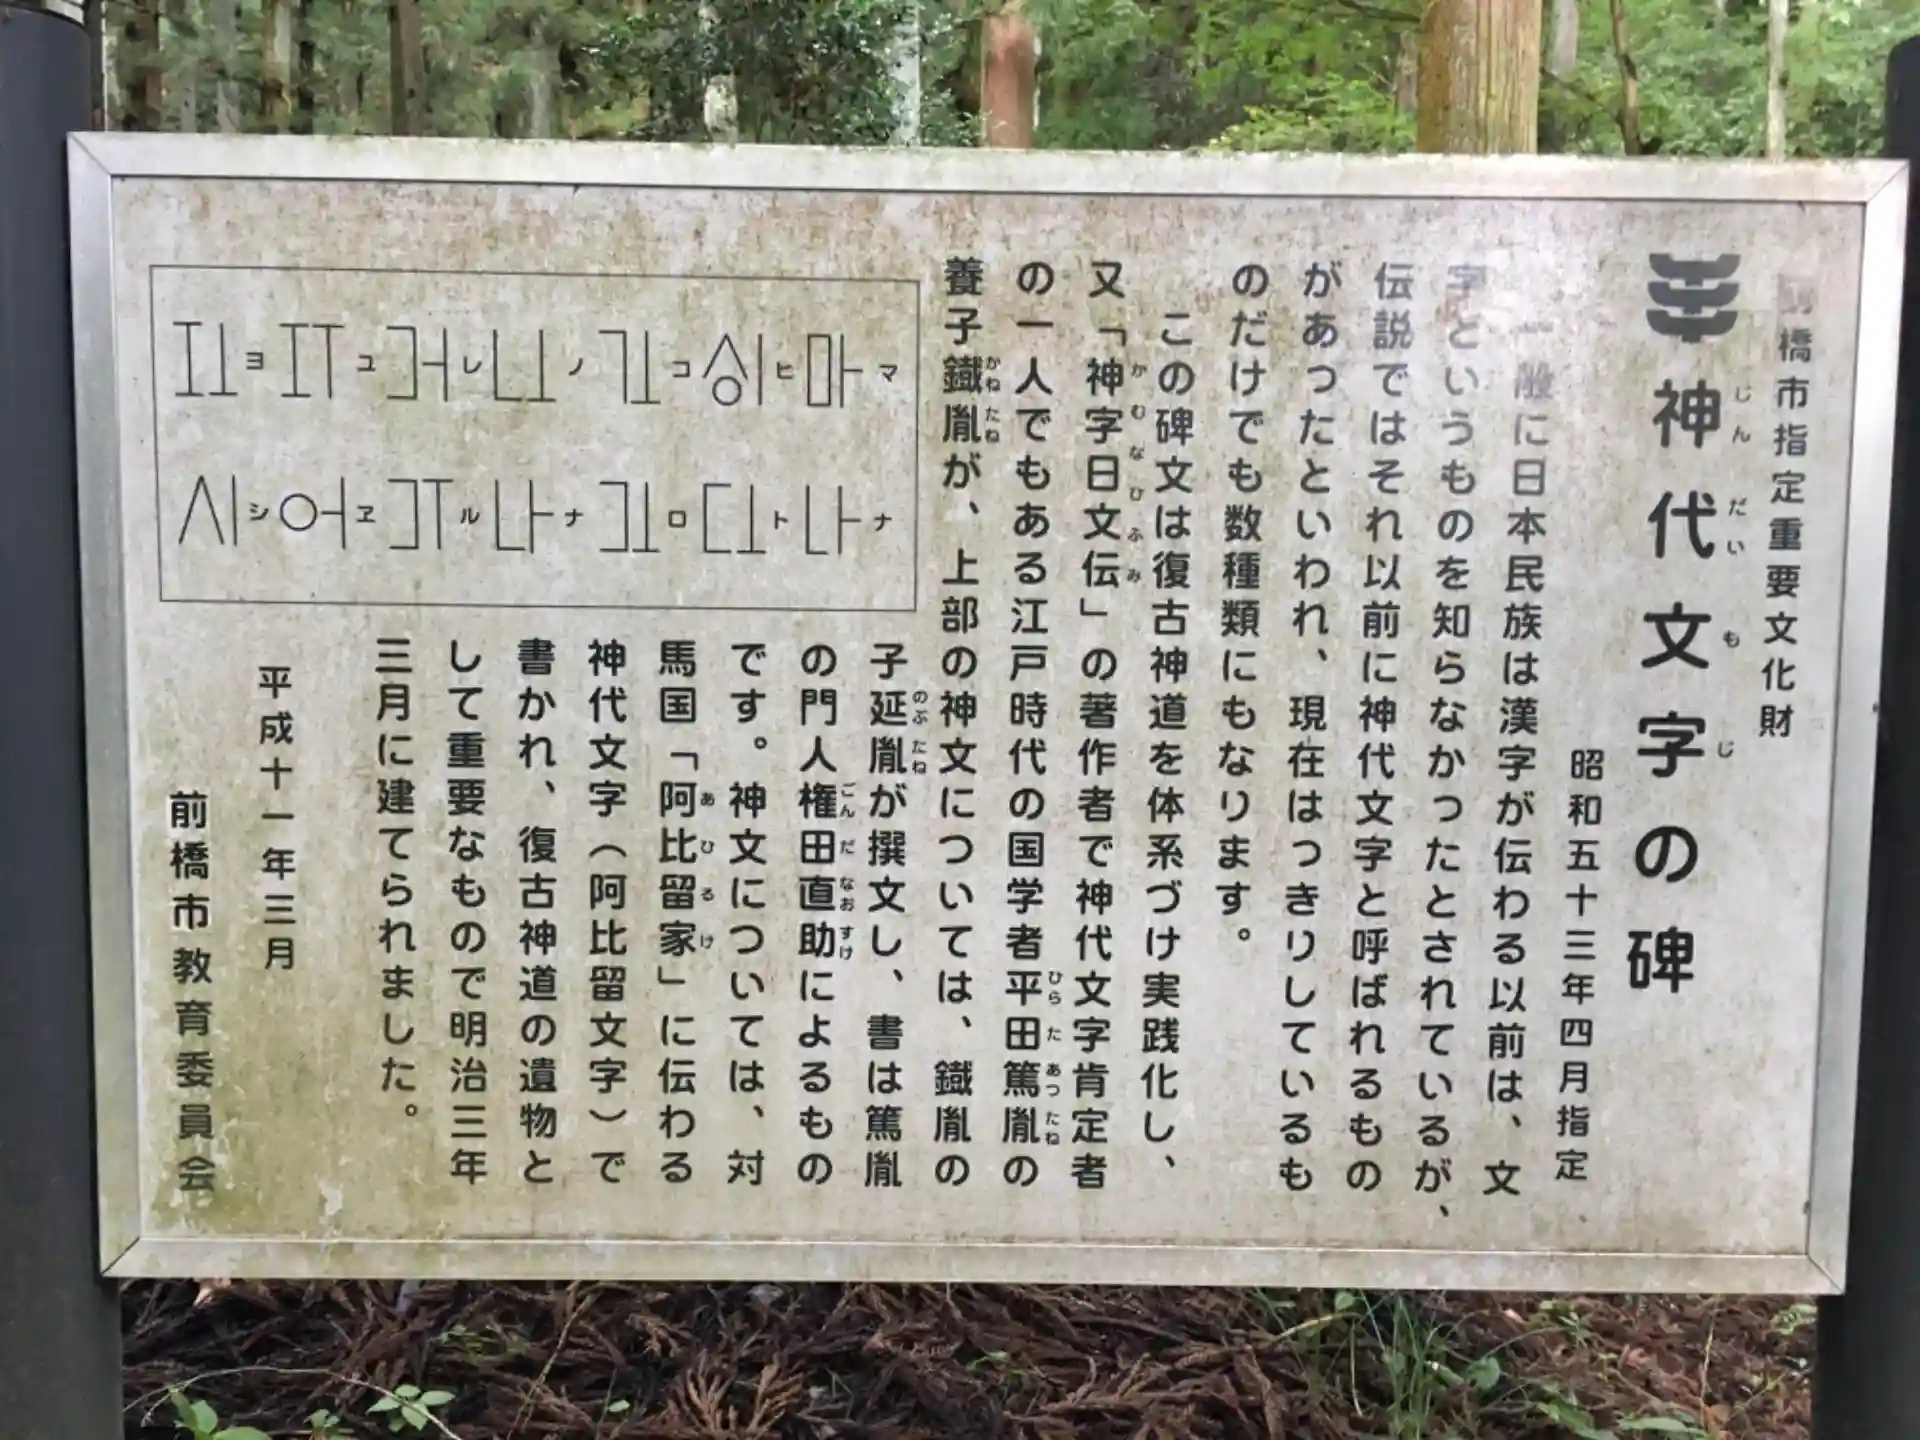 前橋市指定重要文化財
神代文字の碑
じんだいもじ
昭和五十三年四月指定
一般に日本民族は漢字が伝わる以前は、文
字というものを知らなかったとされているが、
伝説ではそれ以前に神代文字と呼ばれるもの
があったといわれ、現在はっきりしているも
のだけでも数種類にもなります。
この碑文は復古神道を体系づけ実践化し、
又「神字日文伝」の著作者で神代文字肯定者
かむなひふみ
の一人でもある江戸時代の国学者平田篤胤の
ひらたあつたね
養子鐵胤が、上部の神文については、鐵胤の
かねたね
子延胤が撰文し、書は篤胤
のぶたね
の門人権田直助によるもの
ごんだなおすけ
です。神文については、対
馬国「阿比留家」に伝わる
あひるけ
神代文字（阿比留文字）で
書かれ、復古神道の遺物と
して重要なもので明治三年
三月に建てられました。
マ ヒ コ ノ レ ユ ヨ
ナ ト ロ ナ ル ヱ シ
平成十一年三月
前橋市教育委員会